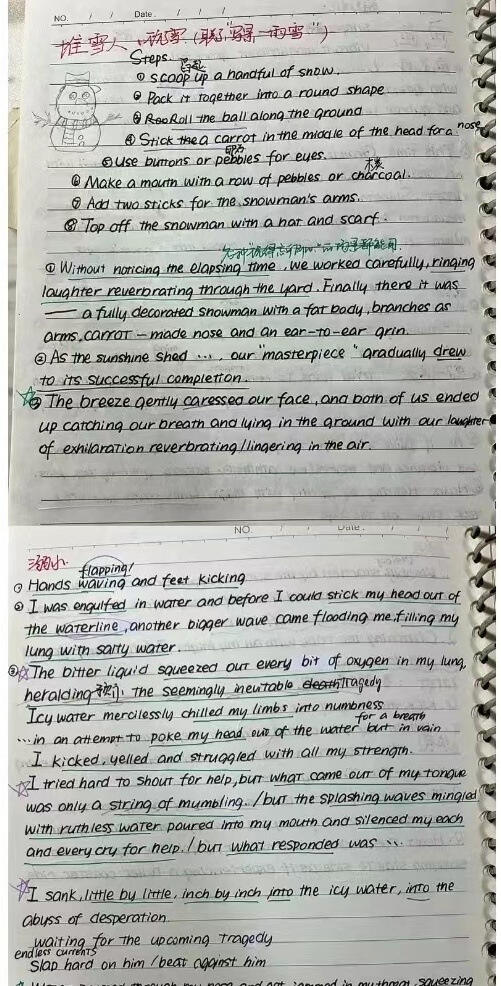 NO. / / Date. / / /
堆雪人、玩雪
Steps
① scoop up a handful of snow.
② Pack it together into a round shape
③ Roll the ball along the ground
④ Stick a carrot in the middle of the head for a nose
⑤ use buttons or pebbles for eyes.
⑥ Make a mouth with a row of pebbles or charcoal.
⑦ Add two sticks for the snowman's arms.
⑧ Top off the snowman with a hat and scarf.
① Without noticing the elapsing time, we worked carefully, ringing
laughter reverbrating through the yard. Finally there it was
— a fully decorated snowman with a fat body, branches as
arms, carrot-made nose and an ear-to-ear grin.
② As the sunshine shed ..., our "masterpiece" gradually drew
to its successful completion.
③ The breeze gently caressed our face, and both of us ended
up catching our breath and lying in the ground with our laughter
of exhilaration reverbrating/lingering in the air.
NO. / / Date. / /
溺水
flapping/
① Hands waving and feet kicking
② I was engulfed in water and before I could stick my head out of
the waterline, another bigger wave came flooding me, filling my
lung with salty water.
③ The bitter liquid squeezed out every bit of oxygen in my lung,
heralding the seemingly ineutable death tragedy
Icy water mercilessly chilled my limbs into numbness
for a breath
... in an attempt to poke my head out of the water but in vain
I kicked, yelled and struggled with all my strength.
I tried hard to shout for help, but what came out of my tongue
was only a string of mumbling. /but the splashing waves mingled
with ruthless water poured into my mouth and silenced my each
and every cry for help. / but what responded was ...
I sank, little by little, inch by inch, into the icy water, into the
abyss of desperation
waiting for the upcoming tragedy
endless currents
Slap hard on him / beat against him